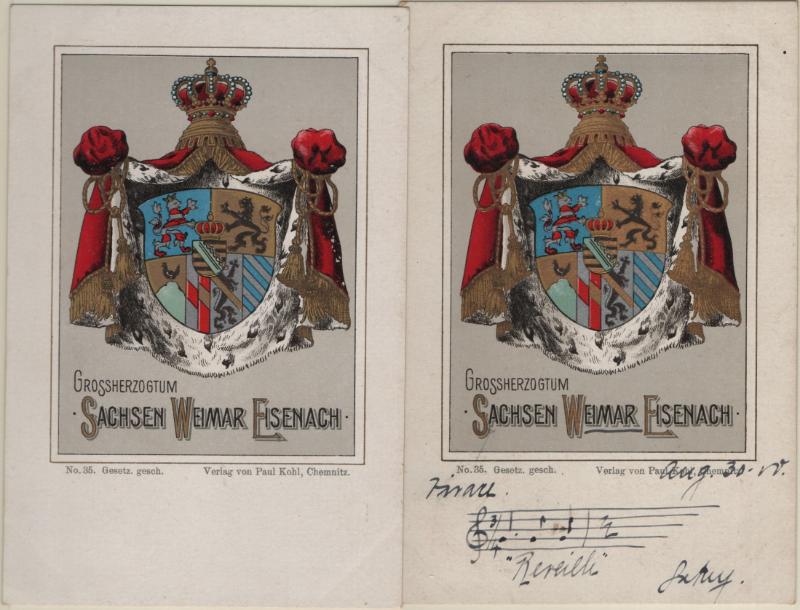 GROSSHERZOGTUM
· SACHSEN WEIMAR EISENACH ·
No. 35. Gesetz. gesch. Verlag von Paul Kohl, Chemnitz.
GROSSHERZOGTUM
· SACHSEN WEIMAR EISENACH ·
No. 35. Gesetz. gesch. Verlag von Paul Kohl, Chemnitz.
Aug. 30
3/4
"Reveille"